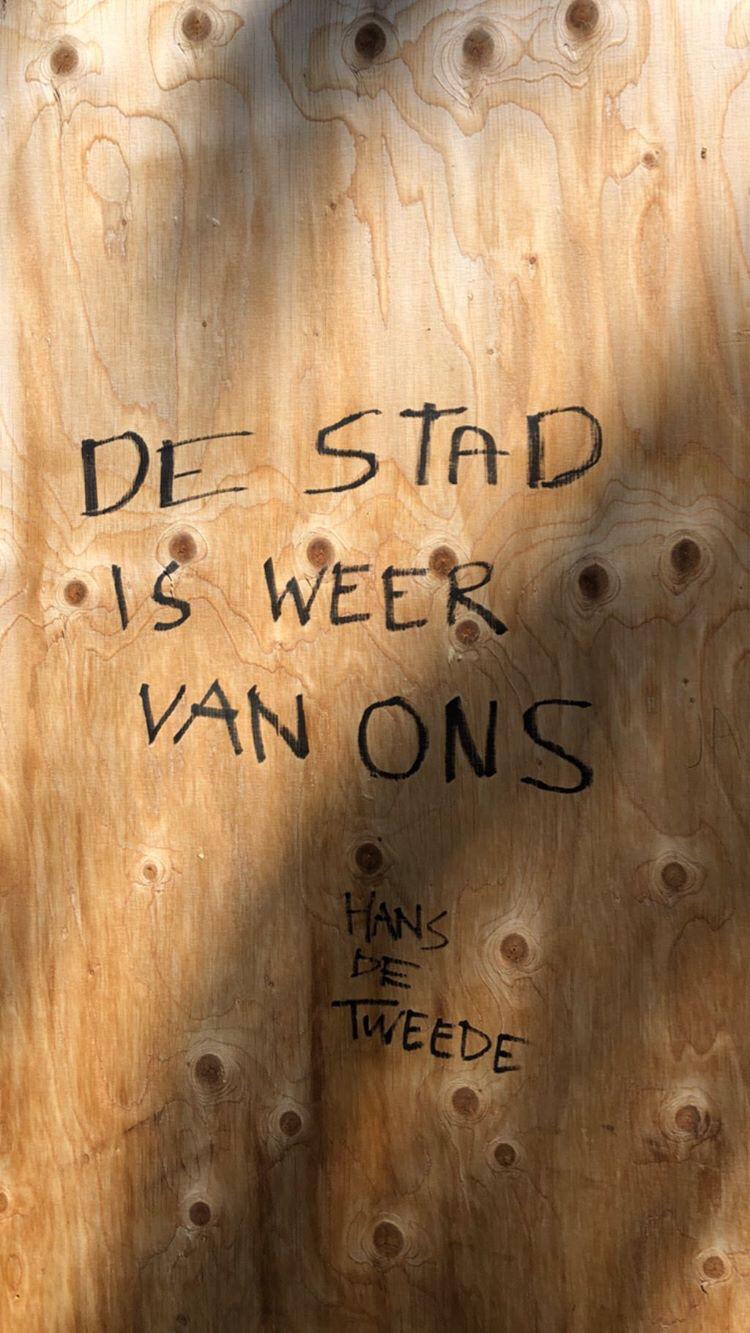 DE STAD
IS WEER
VAN ONS
HANS
DE
TWEEDE